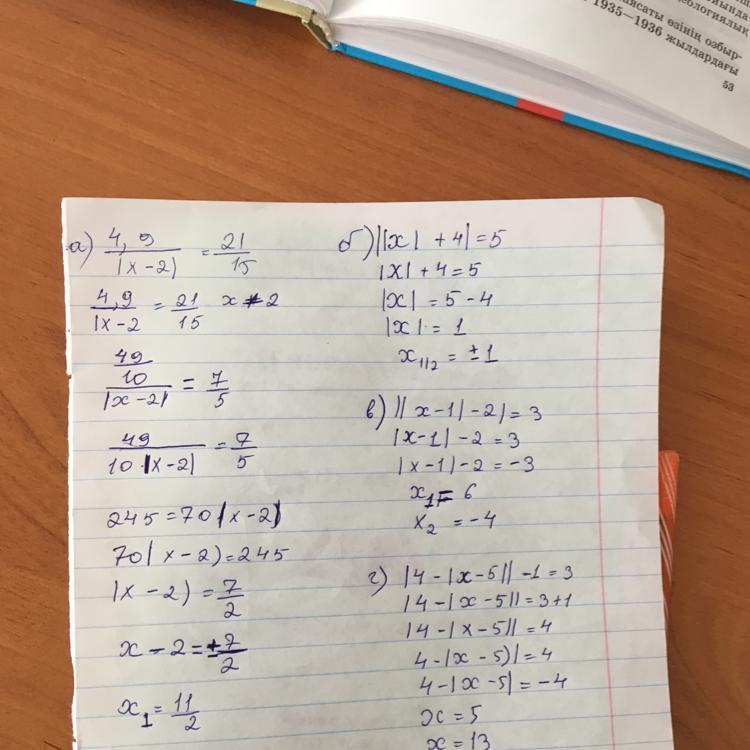 саясаты өзінің озбыр-
1935—1936 жылдардағы
53
а) 4,9/|x-2| = 21/15
4,9/|x-2 = 21/15 x ≠ 2
(49/10)/|x-2| = 7/5
49/(10·|x-2|) = 7/5
245 = 70|x-2|
70|x-2) = 245
|x-2) = 7/2
x - 2 = ±7/2
x₁ = 11/2
б) ||x| + 4| = 5
|x| + 4 = 5
|x| = 5 - 4
|x| = 1
x₁|₂ = ±1
в) ||x-1| - 2| = 3
|x-1| - 2 = 3
|x-1| - 2 = -3
x₁ = 6
x₂ = -4
г) |4-|x-5|| - 1 = 3
|4-|x-5|| = 3+1
|4-|x-5|| = 4
4-|x-5)| = 4
4-|x-5| = -4
x = 5
x = 13